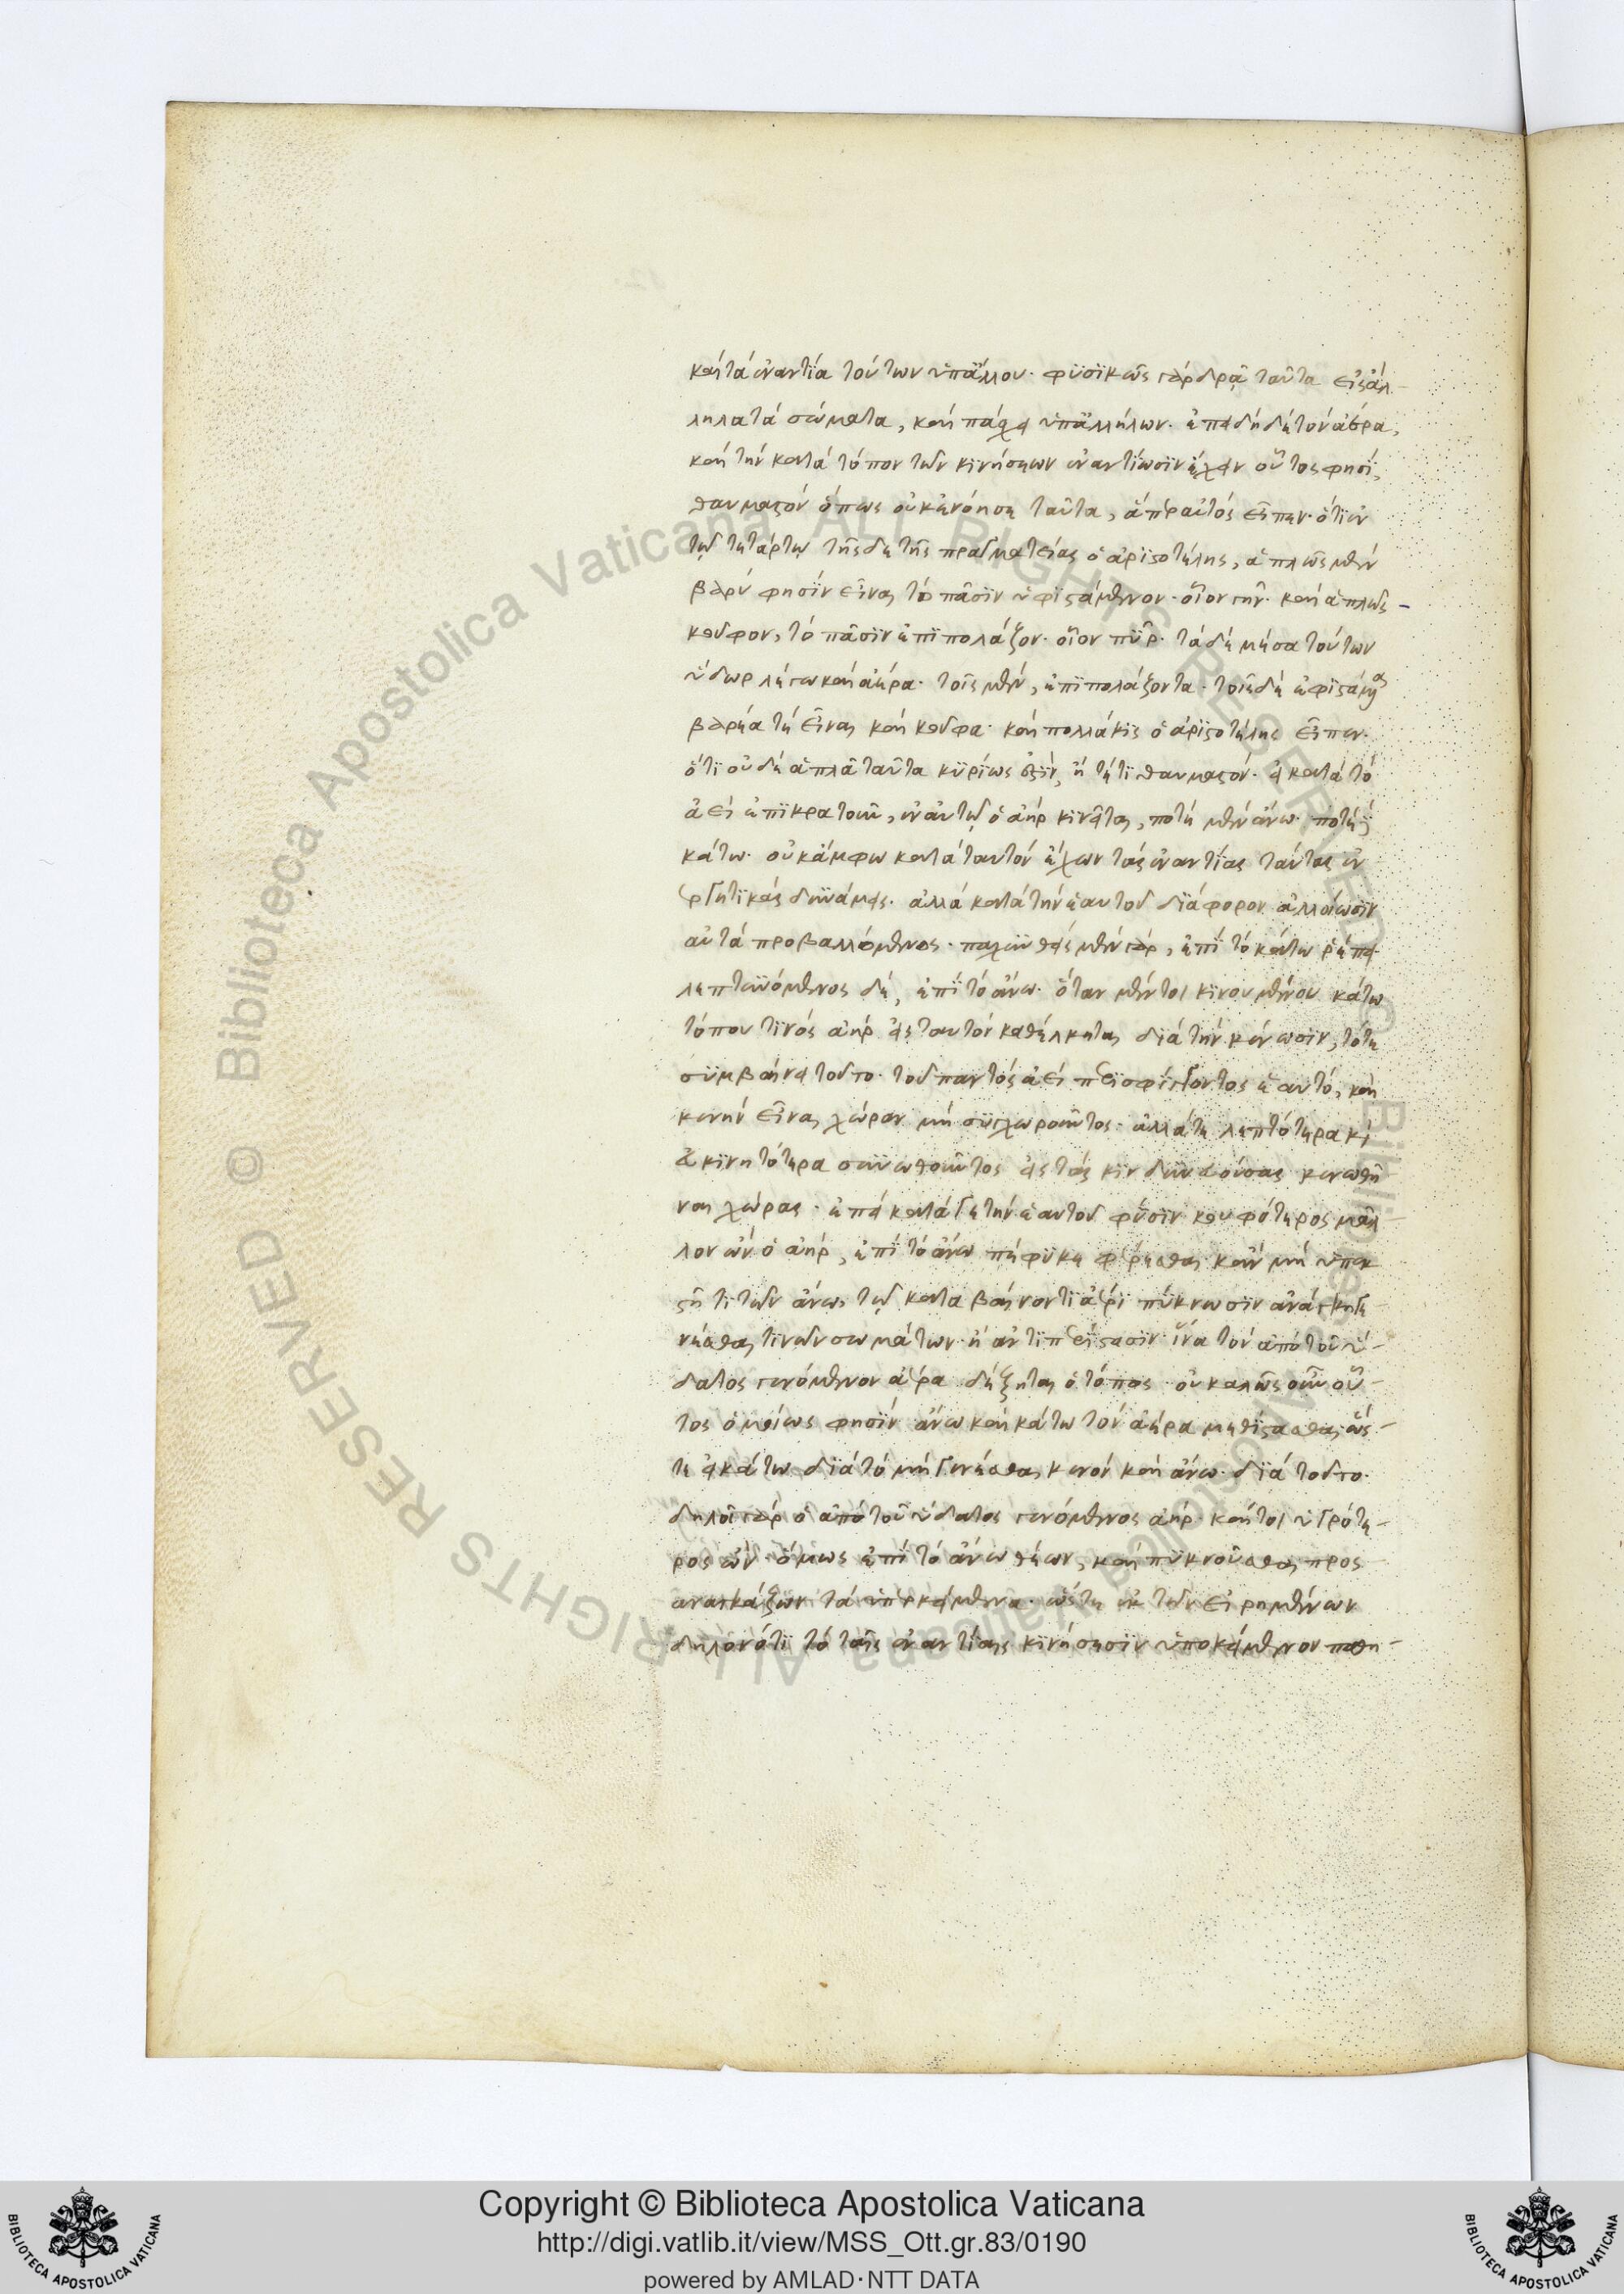 καὶ τὰ ἐναντία τούτων ὑπ' ἄλλου. φυσικῶς γὰρ δρᾷ ταῦτα εἰς ἄλ-
ληλα τὰ σώματα, καὶ πάσχει ὑπ' ἀλλήλων. ἐπειδὴ δὲ τὸν ἀέρα,
καὶ τὴν κατὰ τόπον τῶν κινήσεων ἐναντίωσιν ἔχειν οὗτος φησὶ,
θαυμαστὸν ὅπως οὐκ ἐνόησε ταῦτα, ἅπερ αὐτὸς εἶπεν. ὅτι ἐν
τῷ τετάρτῳ τῆσδε τῆς πραγματείας ὁ ἀριστοτέλης, ἁπλῶς μὲν
βαρύ φησὶν εἶναι τὸ πᾶσιν ὑφιστάμενον. οἷον γῆν. καὶ ἁπλῶς
κοῦφον, τὸ πᾶσιν ἐπιπολάζον. οἷον πῦρ. τὰ δὲ μέσα τούτων
ὕδωρ λέγω καὶ ἀέρα. τοῖς μὲν, ἐπιπολάζοντα. τοῖς δὲ ὑφιστάμενα
βαρέα τὲ εἶναι καὶ κοῦφα. καὶ πολλάκις ὁ ἀριστοτέλης εἶπεν.
ὅτι οὐδὲ ἁπλᾶ ταῦτα κυρίως ἐστὶν, ἢ τέ τι θαυμαστὸν. εἰ κατὰ τὸ
ἀεὶ ἐπικρατοῦν, ἐν αὐτῷ ὁ ἀὴρ κινεῖται, ποτὲ μὲν ἄνω. ποτὲ δὲ
κάτω. οὐκ ἄμφω κατὰ ταυτὸν ἔχων τὰς ἐναντίας ταύτας ἐν
εργητικὰς δυνάμεις. ἀλλὰ κατὰ τὴν ἑαυτοῦ διάφορον ἀλλοίωσιν
αὐτὰ προβαλλόμενος. παχυνθεὶς μὲν γὰρ, ἐπὶ τὸ κάτω ῥέπει.
λεπτυνόμενος δὲ, ἐπὶ τὸ ἄνω. ὅταν μέντοι κινουμένου κάτω
τόπου τινὸς ἀὴρ εἰς ταυτὸν καθέλκηται διὰ τὴν κένωσιν, τότε
συμβαίνει τοῦτο. τοῦ παντὸς ἀεὶ περισφίγγοντος ἑαυτὸ, καὶ
κενὴν εἶναι χώραν μὴ συγχωροῦντος. ἀλλὰ τὰ λεπτότερα καὶ
εὐκινητότερα συνωθοῦντος εἰς τὰς κινδυνευούσας κενωθῆ
ναι χώρας. ἐπεὶ κατά γε τὴν ἑαυτοῦ φύσιν κουφότερος μᾶλ-
λον ὢν ὁ ἀὴρ, ἐπὶ τὸ ἄνω πέφυκε φέρεσθαι. κἂν μὴ ὑπεκ
στῇ τι τῶν ἄνω, τῷ καταβαίνοντι ἀέρι πύκνωσιν ἀνάγκη γε-
νέσθαι τινῶν σωμάτων. ἢ ἀντιπερίστασιν. ἵνα τὸν ἀπὸ τοῦ ὕ-
δατος γενόμενον ἀέρα δέξηται ὁ τόπος. οὐ καλῶς οὖν οὗ-
τος ὁμοίως φησὶν ἄνω καὶ κάτω τὸν ἀέρα μεθίστασθαι, ὥς-
τε εἰ κάτω διὰ τὸ μὴ γενέσθαι κενὸν καὶ ἄνω. διὰ τοῦτο.
δηλοῖ γὰρ ὁ ἀπὸ τοῦ ὕδατος γενόμενος ἀήρ. καίτοι ὑγρότε-
ρος ὤν. ὅμως ἐπὶ τὸ ἄνω θέων, καὶ πυκνοῦσθαι προς
αναγκάζων τὰ ὑπερκείμενα. ὥστε ἐκ τῶν εἰρημένων
δηλονότι τὸ ταῖς ἐναντίαις κινήσεσιν ὑποκείμενον παθη-
Copyright © Biblioteca Apostolica Vaticana
http://digi.vatlib.it/view/MSS_Ott.gr.83/0190
powered by AMLAD·NTT DATA
BIBLIOTECA APOSTOLICA VATICANA
BIBLIOTECA APOSTOLICA VATICANA
© Biblioteca Apostolica Vaticana ALL RIGHTS RESERVED
© Biblioteca Apostolica Vaticana ALL RIGHTS RESERVED